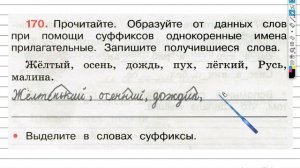 170. Прочитайте. Образуйте от данных слов
при помощи суффиксов однокоренные имена
прилагательные. Запишите получившиеся слова.
Жёлтый, осень, дождь, пух, лёгкий, Русь,
малина.
Желтенький, осенний, дождли,
• Выделите в словах суффиксы.